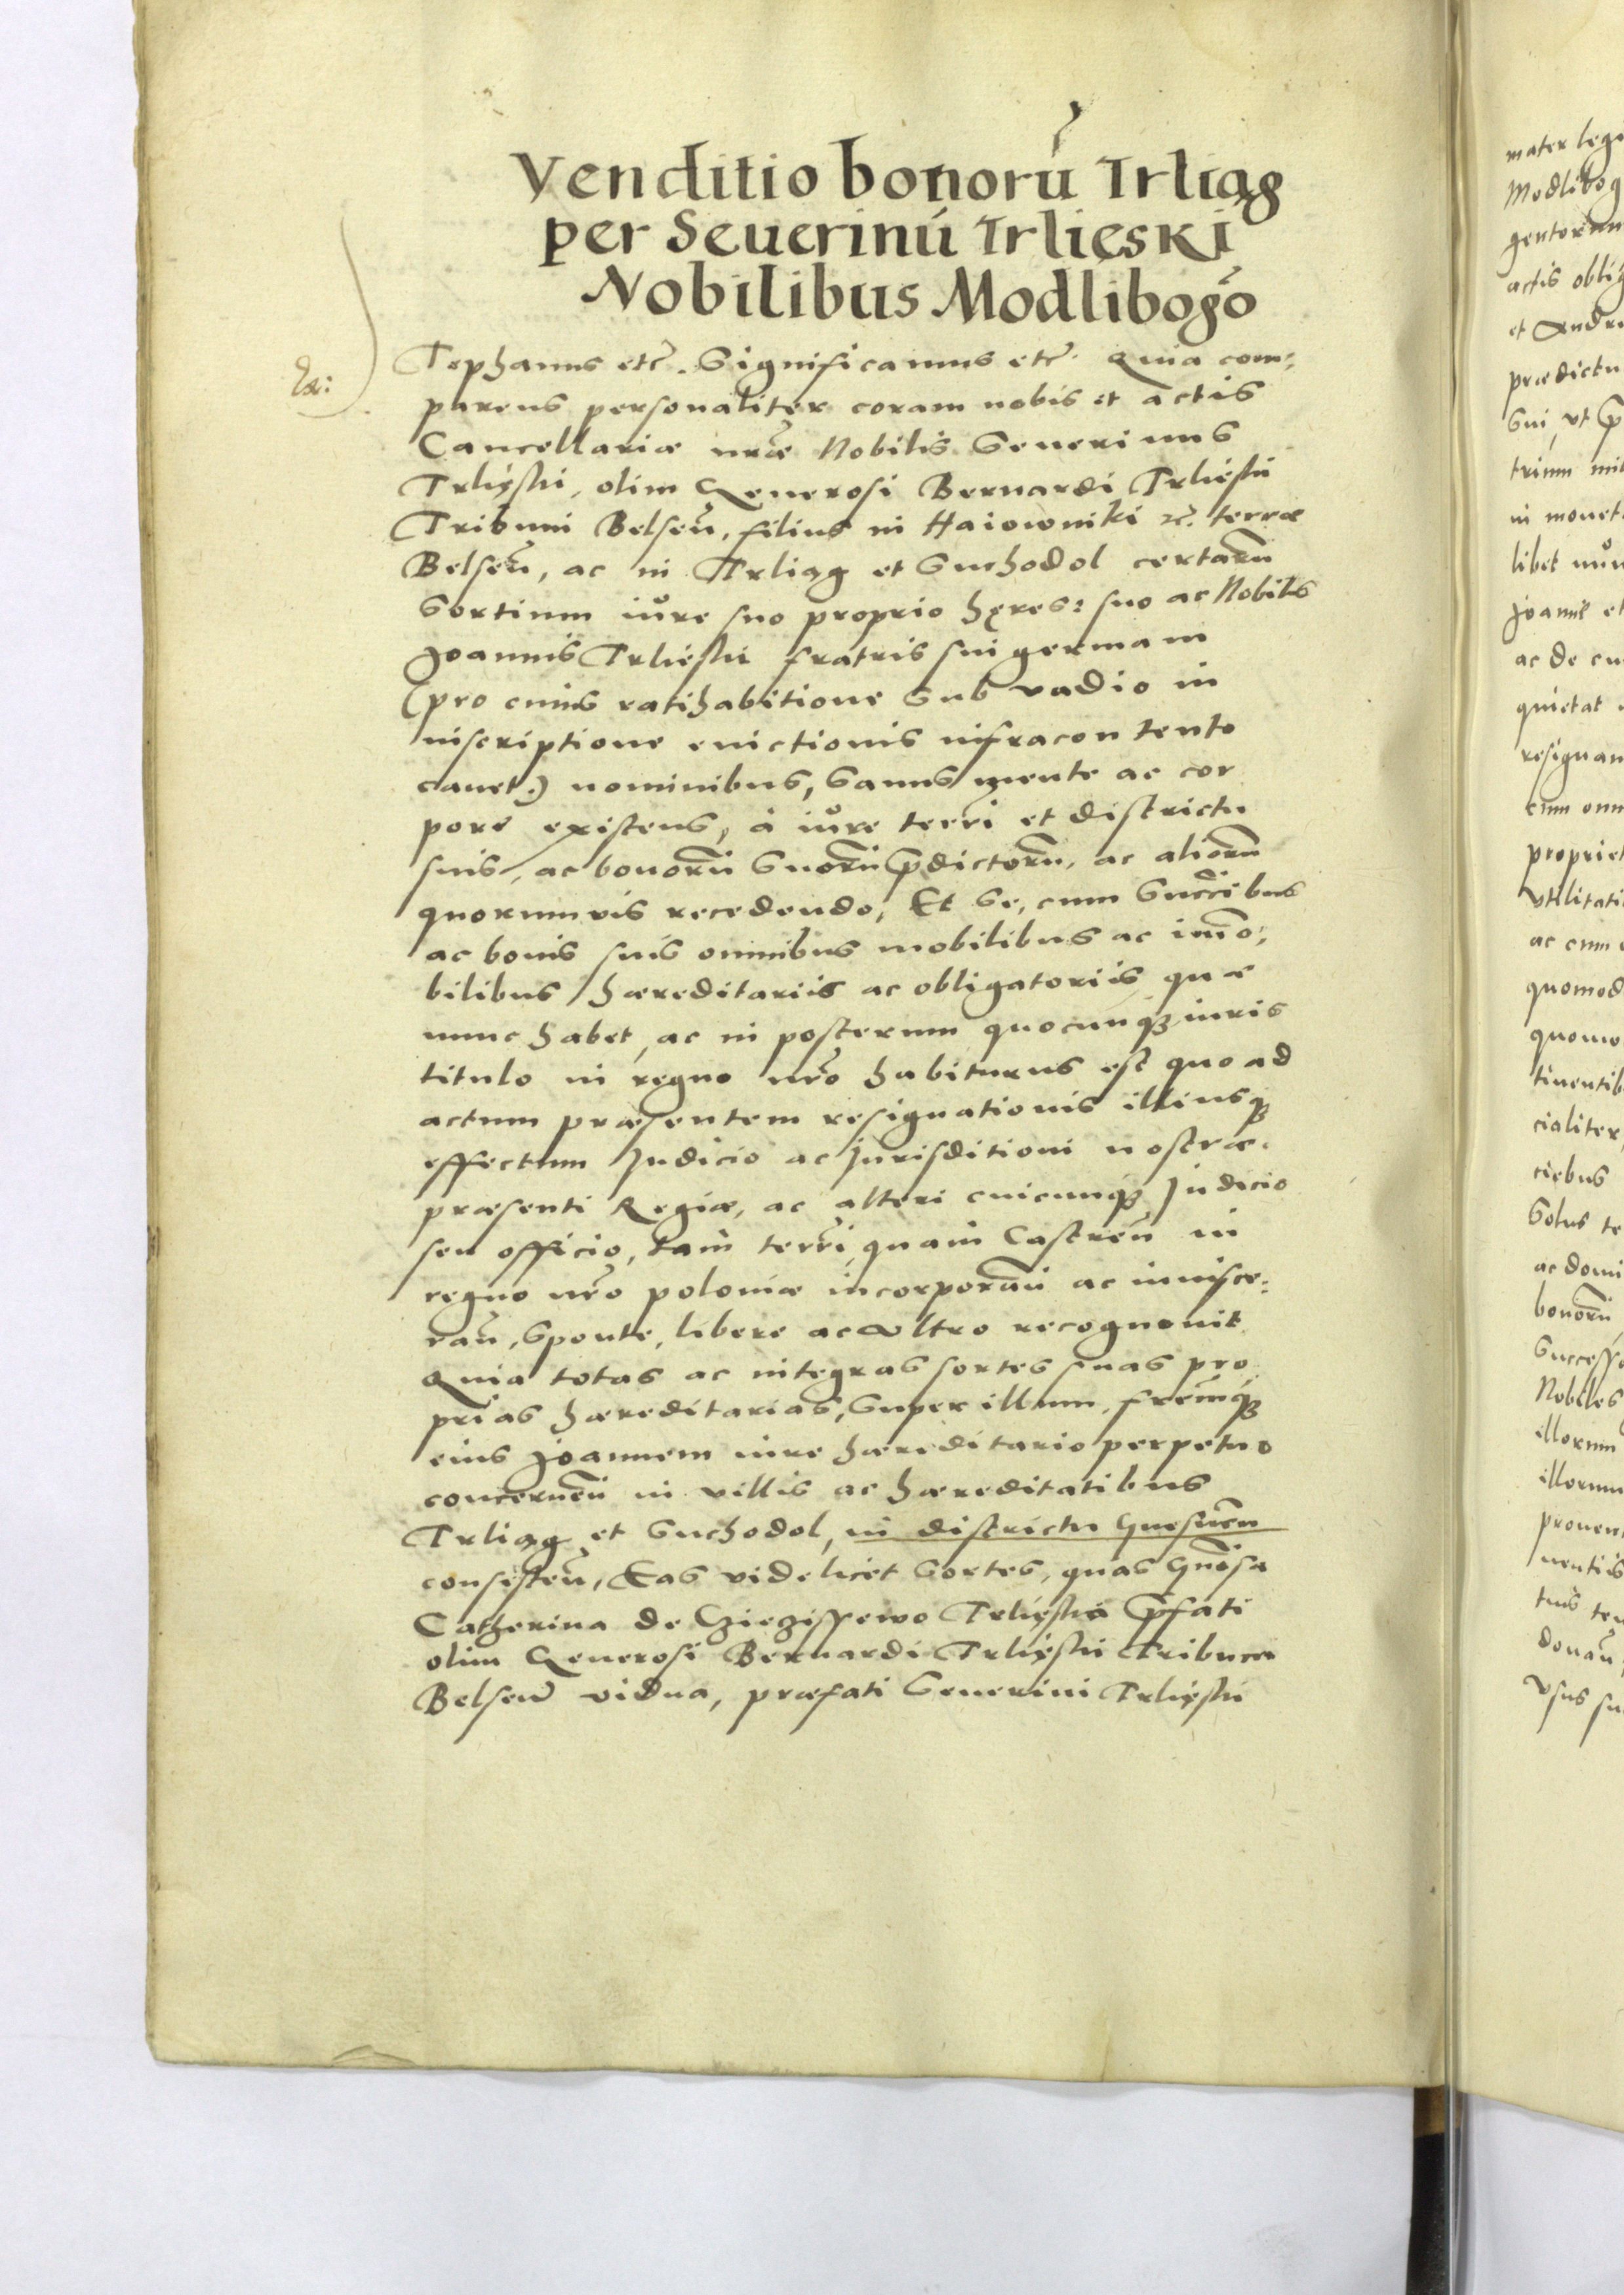 Venditio bonorū Trliąg
per Seuerinū Trlięski
Nobilibus Modlibogō
Ex:
Tephanus etc̃. Significamus etc̃. Quia com;
parens personaliter coram nobis et actis
Cancellariæ nr̃æ Nobilis Seuerinus
Trlięski, olim Generosi Bernardi Trlięski
Tribuni Belseñ, filius in Haiowniki etc. terræ
Belseñ, ac in Trliąg et Suchodol certarū
Sortium iure suo proprio hęres: suo ac Nobilis
Joannis Trlięski fratris sui germani
(pro cuius ratihabitione sub vadio in
inscriptione euictionis infracontento
cauet.) nominibus, Sanus mente ac cor
pore existens, à iure terri et districtu
suis, ac bonorū suorū p̃dictorū, ac aliorū
quorumuis recedendo, Et se, cum succ̃ibus
ac bonis suis omnibus mobilibus ac im̃o;
bilibus hæreditariis ac obligatoriis quæ
nunc habet, ac in posterum quocunq̧ iuris
titulo in regno nr̃o habiturus est quo ad
actum præsentem resignationis illiusq̧
effectum Judicio ac Jurisditioni nostræ.
præsenti Regiæ, ac alteri cuicunq̧ Judicio
seu officio, tam terri, quam Castreñ in
regno nr̃o poloniæ incorporañ ac inuisce:
rañ, Sponte, libere ac vltro recognouit
Quia totas ac integras sortes suas pro
prias hæreditarias, super illum, fr̃emq̧
eius Joannem iure hæreditario perpetuo
concerneñ in villis ac hæreditatibus
Trliąg et Suchodol, in districtu Gnesneñ
consisteñ, Eas videlicet Sortes, quas Gñosa
Catherina de Trlięska p̃fati
olim Generosi Bernardi Trlięski Tribuni
Belseñ vidua, præfati Seuerini Trlięski
mater
Modlibog
actis
et
prædictu
libet
ac de
quietat
resignan
propriet
vtilitati
quomod
cialiter
ciebus
Solus te
bonorū
Successo
Nobiles
illorum
illorum